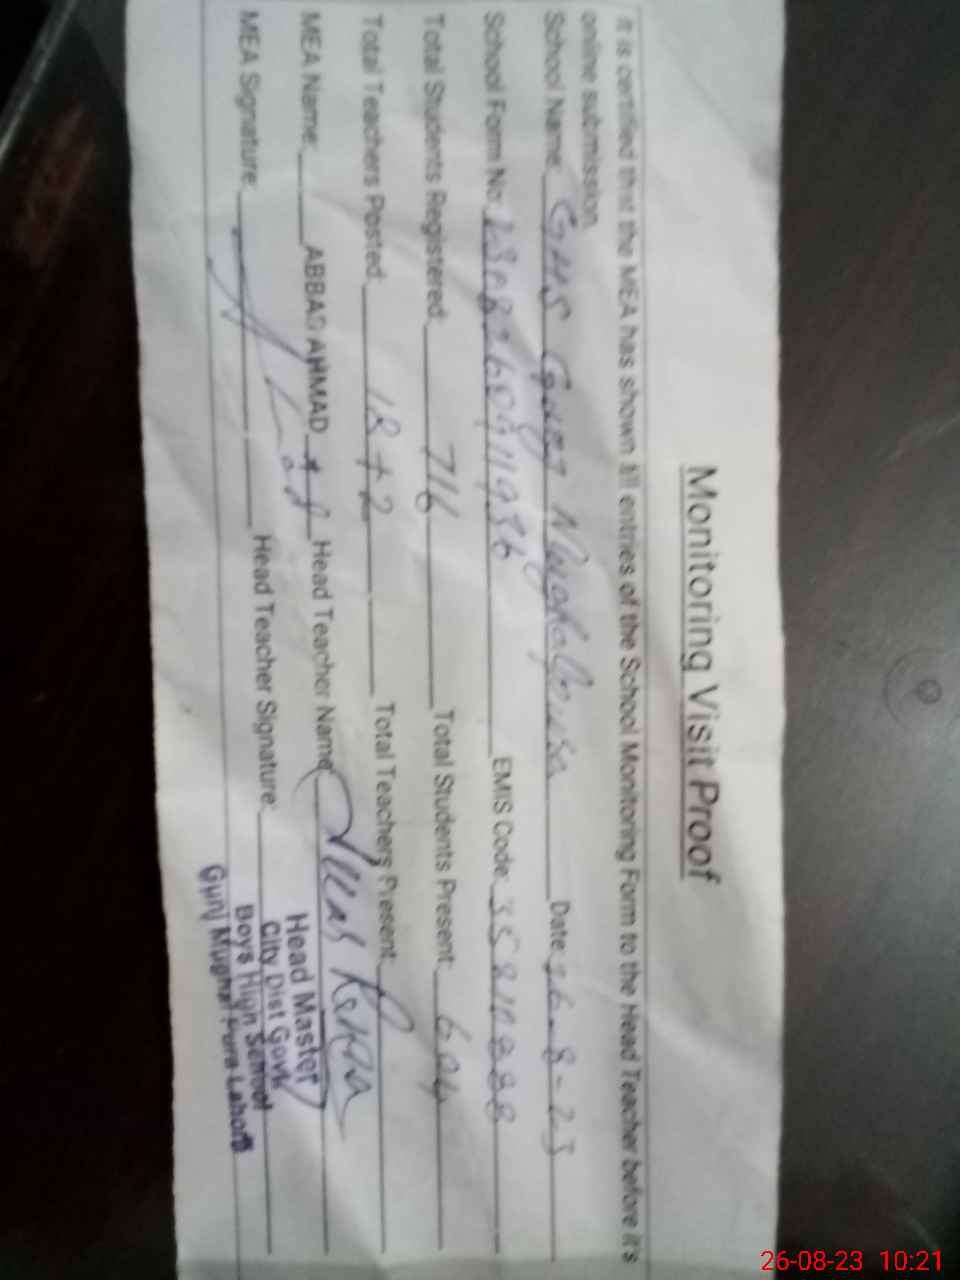 Monitoring Visit Proof
It is certified that the MEA has shown all entries of the School Monitoring Form to the Head Teacher before it's
online submission.
School Name: GHS Date: 26-8-23
School Form No: EMIS Code:
Total Students Registered: 716 Total Students Present: 604
Total Teachers Posted: 18+2 Total Teachers Present:
MEA Name: ABBAS AHMAD Head Teacher Name:
MEA Signature: Head Teacher Signature:
Head Master
City Dist Govt
Boys High School
Gunj Mughal Pura Lahore
26-08-23 10:21